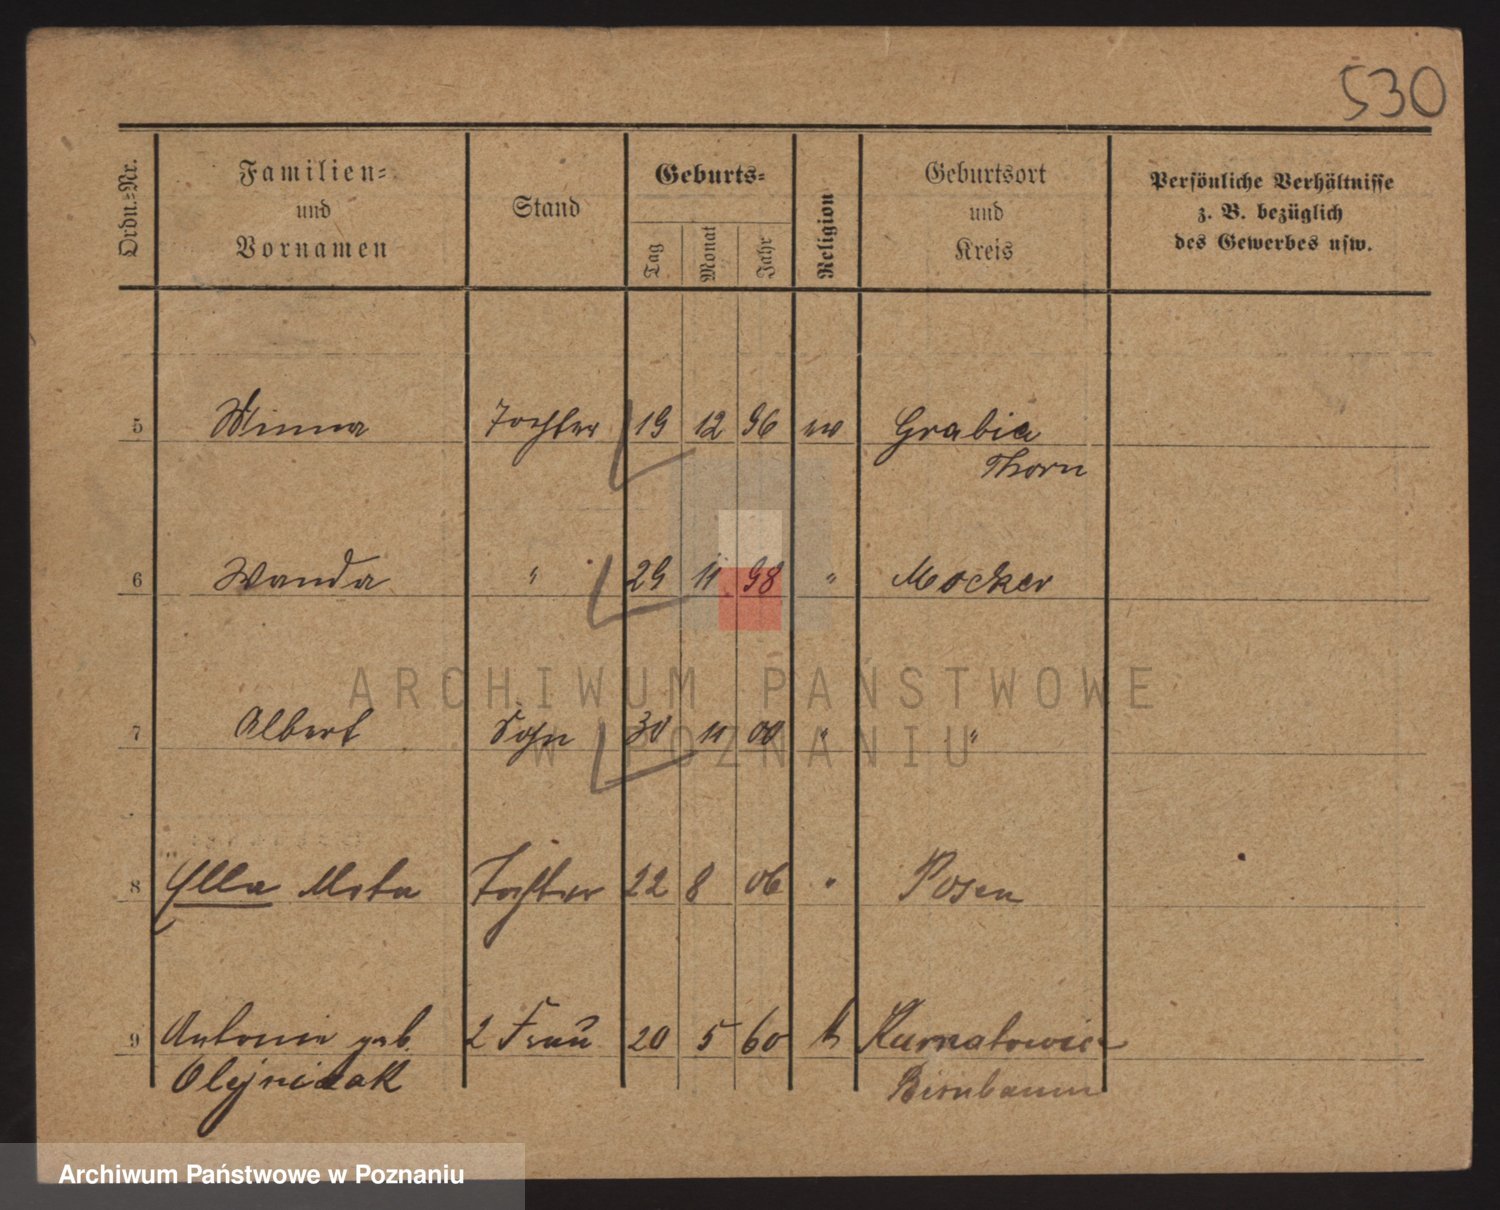 530
Ordn.-Nr.
Familien-
und
Vornamen
Stand
Geburts-
Tag
Monat
Jahr
Religion
Geburtsort
und
Kreis
Persönliche Verhältnisse
z. B. bezüglich
des Gewerbes usw.
5 Minna Tochter 19 12 96 ev Grabia
Thorn
6 Wanda " 29 11 98 " Mocker
7 Albert Sohn 30 11 00 " "
8 Ella Meta Tochter 22 8 06 " Posen
9 Antonie geb. 2 Frau 20 5 60 k Kurnatowice
Olejniczak Birnbaum
ARCHIWUM PAŃSTWOWE
W POZNANIU
Archiwum Państwowe w Poznaniu